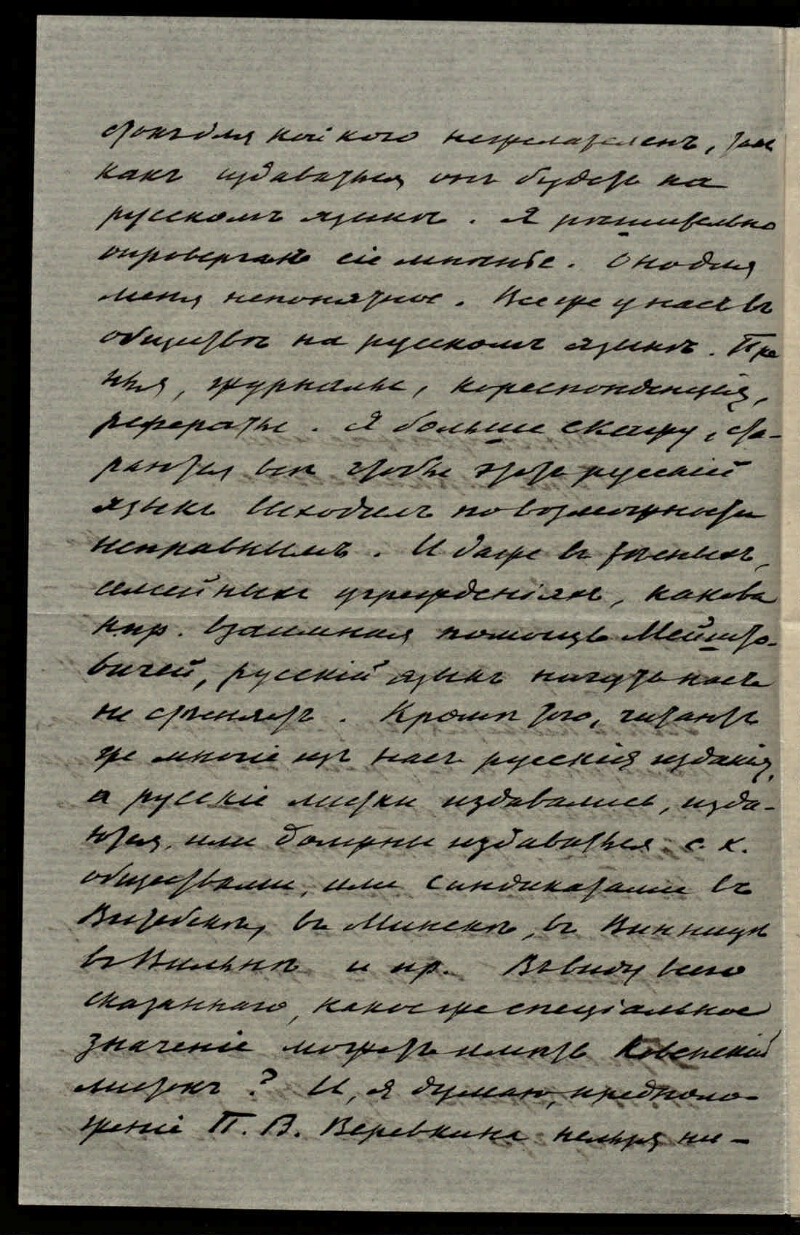 стокъ для кой кого нежелателенъ, такъ
какъ издаваться онъ будетъ на
русскомъ языкѣ. Я рѣшительно
опровергаю сіе мнѣніе. Оно для
меня непонятное. Все же у насъ въ
обществѣ на русскомъ языкѣ. Пре
нія, журналы, кореспонденція,
рефераты. Я больше скажу, ста-
раются всѣ чтобы этотъ русскій
языкъ выходилъ по возможности
исправнымъ. И даже въ
семейныхъ учрежденіяхъ, какова
нпр. взаимная помощь Мейшто-
вичей, русскій языкъ ничуть насъ
не стѣсняетъ. Кромѣ того, читаютъ
же многіе изъ насъ русскія изданія,
а русскіе листки издавались, изда-
ются, или должны издаваться с. х.
обществами, или синдикатами въ
Витебскѣ, въ Минскѣ, въ Винницѣ
въ Вильнѣ и пр. Въ виду всего
сказаннаго, какое же спеціальное
значеніе можетъ имѣть Ковенскій
листокъ? И, я думаю, предполо-
женіе П. В. Веревкина нельзя ни-